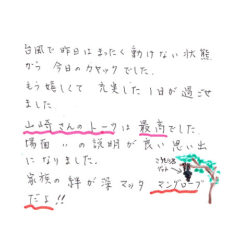 台風で昨日はまったく動けない状態
から今日のカヤックでした。
もう嬉しくて充実した1日が過ごせ
ました。
山崎さんのトークは最高でした。
場面々の説明が良い思い出
になりました。
家族の絆が深マッタマングローブ
だよ!!